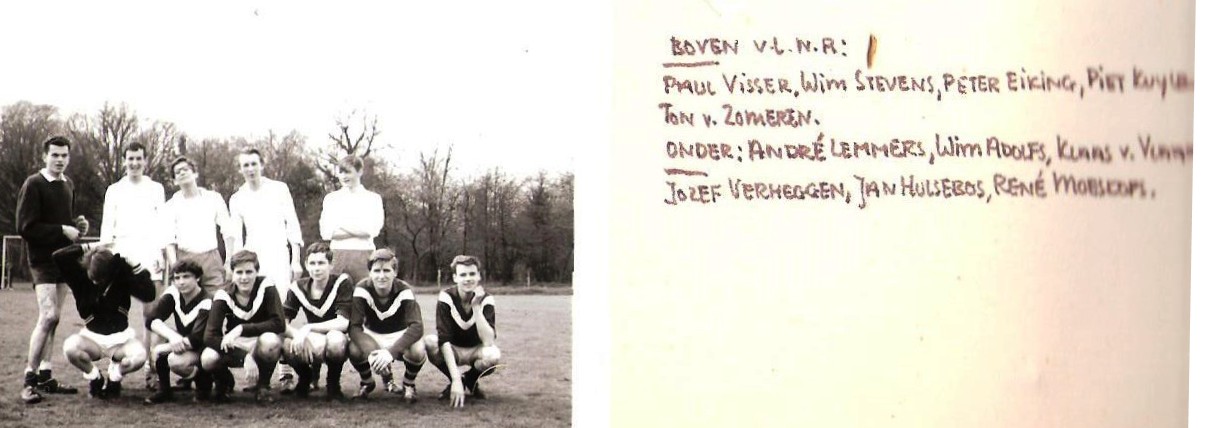 BOVEN V.L.N.R:
PAUL VISSER, WIM STEVENS, PETER EIKING, PIET
TON v. ZOMEREN.
ONDER: ANDRÉ LEMMERS, WIM ADOLFS, KLAAS v.
JOZEF VERHEGGEN, JAN HULSEBOS, RENÉ MOESKOPS.